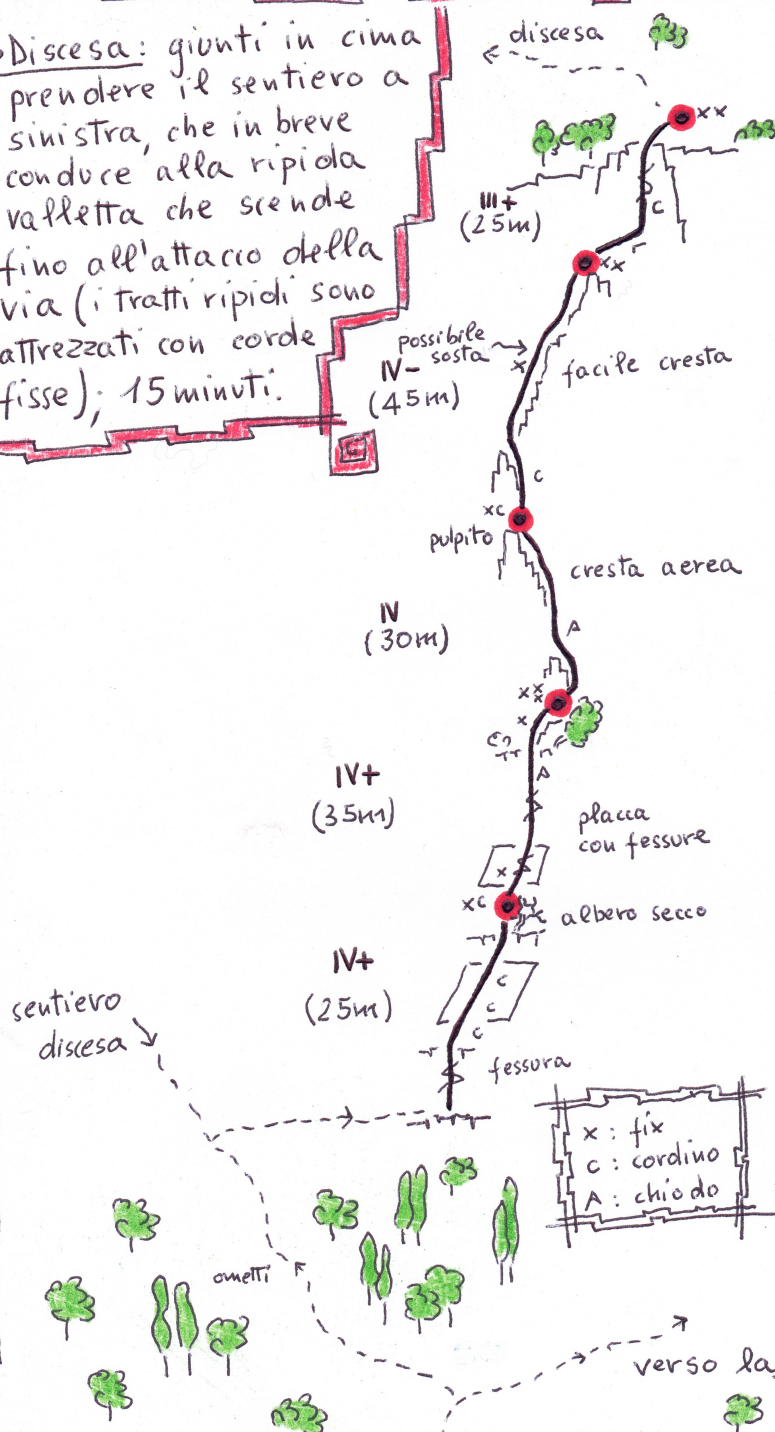 Discesa: giunti in cima
prendere il sentiero a
sinistra, che in breve
conduce alla ripida
valletta che scende
fino all'attacco della
via (i tratti ripidi sono
attrezzati con corde
fisse); 15 minuti.
discesa
xx
III+
(25m)
c
xx
possibile
sosta
x
IV-
(45m)
facile cresta
c
xc
pulpito
cresta aerea
IV
(30m)
A
xx
x
x
A
IV+
(35m)
placca
con fessure
x
xc
albero secco
IV+
(25m)
c
c
c
sentiero
discesa
fessura
x: fix
c: cordino
A: chiodo
ometti
verso la